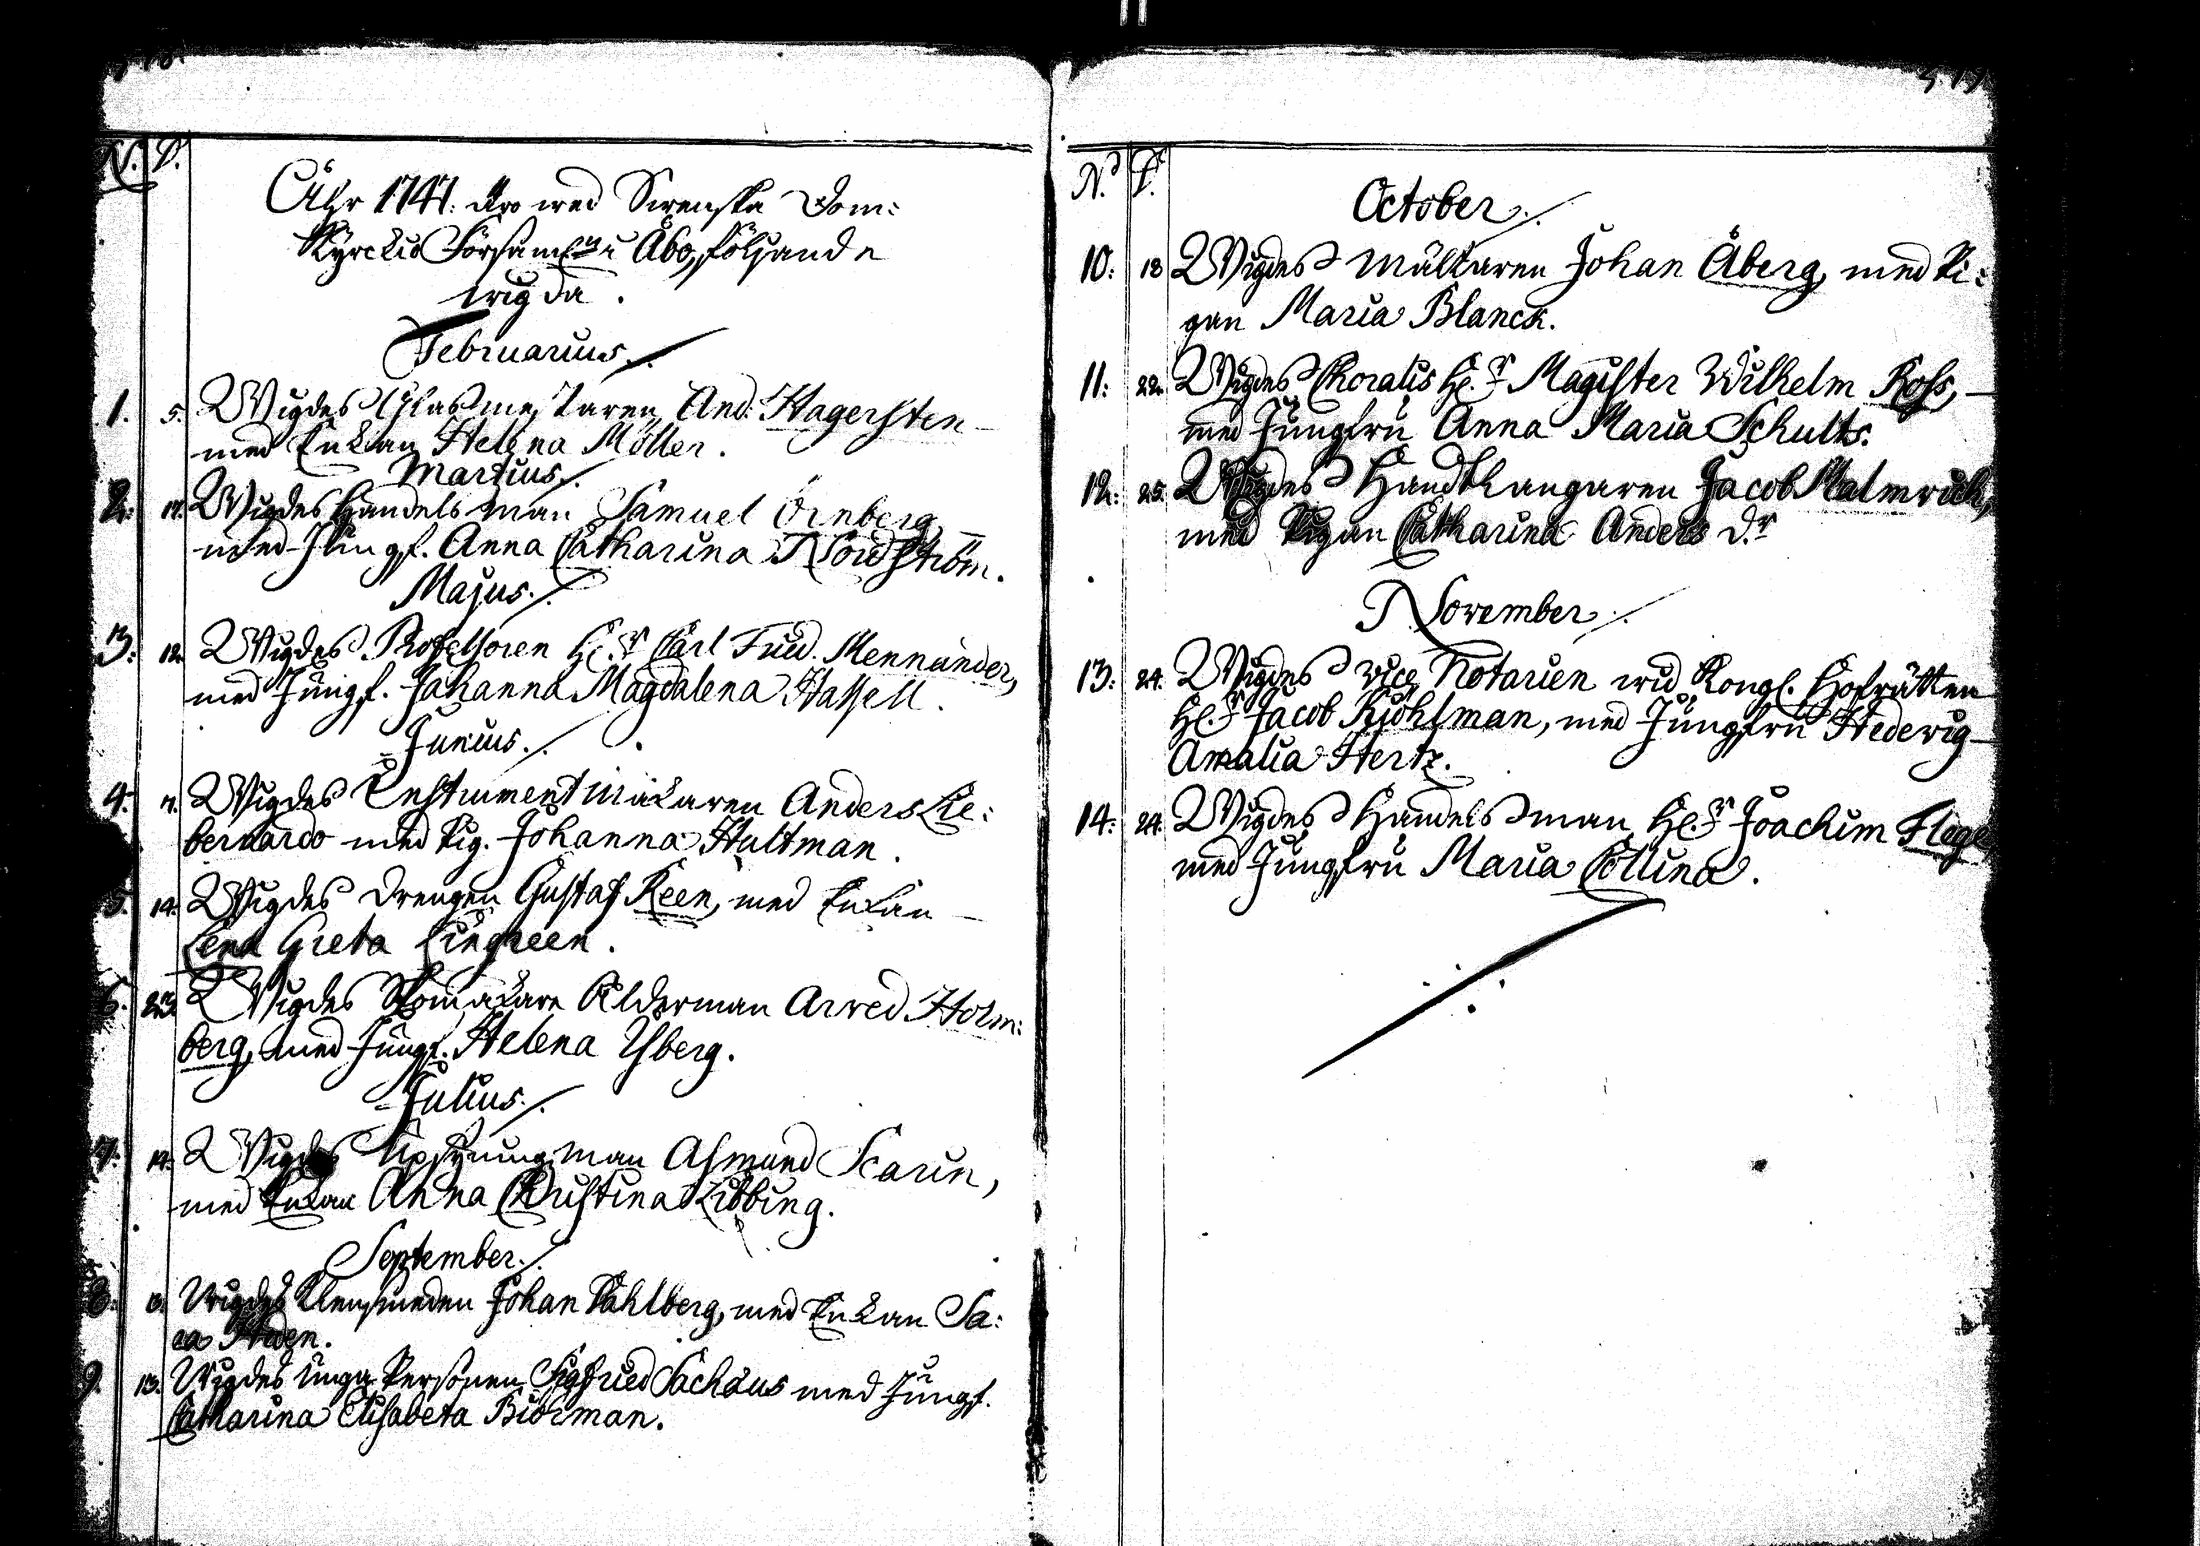 N. D.
Åhr 1747. äro wed Swenska Dom:
Kyrckio Församl:n i Åbo, följande
wigda.
Februarius.
1. 5. Wigdes Glasmestaren And: Hagersten
med Enkan Helena Möller.
Martius.
2. 17. Wigdes Handelsman Samuel Örnberg,
med Jungf. Anna Catharina Nordström.
Majus.
3: 12. Wigdes Professoren H:r Carl Fried. Mennander,
med Jungf. Johanna Magdalena Hassell.
Junius.
4. 7. Wigdes Instrumentmakaren Anders Lie:
bernardo med Pig. Johanna Hultman.
5. 14. Wigdes Drengen Gustaf Keen, med Enkan
Lena Greta Lingreen.
6. 23. Wigdes Skomakare Ålderman Arved Holm:
berg, med Jungf. Helena Ysberg.
Julius.
7. 14. Wigdes Upsyningsman Asmund Scarin,
med Enkan Anna Christina Libbing.
September.
8: Wigdes Johan Pahlberg, med Enkan Sa:
ra Heden.
9. 13. Wigdes unga Personen Sigfried Sachæus med Jungf.
Catharina Elisabeta Biörman.
N:o D.
October.
10: 18 Wigdes Mältaren Johan Åberg, med Pi:
gan Maria Blanck.
11: 22. Wigdes Choralis H:r Magister Wilhelm Ross,
med Jungfru Anna Maria Schults.
12: 25. Wigdes Handtlangaren Jacob Malmrik,
med Pigan Catharina Anders D:r
November.
13: 24. Wigdes vice Notarien wid Kongl. Hofrätten
H:r Jacob Kjöhlman, med Jungfru Hedewig
Amalia Hertz.
14: 24. Wigdes Handelsman H:r Joachim Flege
med Jungfru Maria Collina.